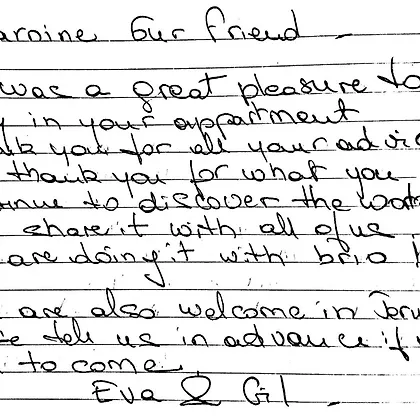 arnine Our friend
was a great pleasure to
y in your appartment
lk you for all your advic
thank you for what you
inue to discover the world
share it with all of us
are doing it with brio !
are also welcome in Jeru
e tell us in advance if
to come
Eva & Gil